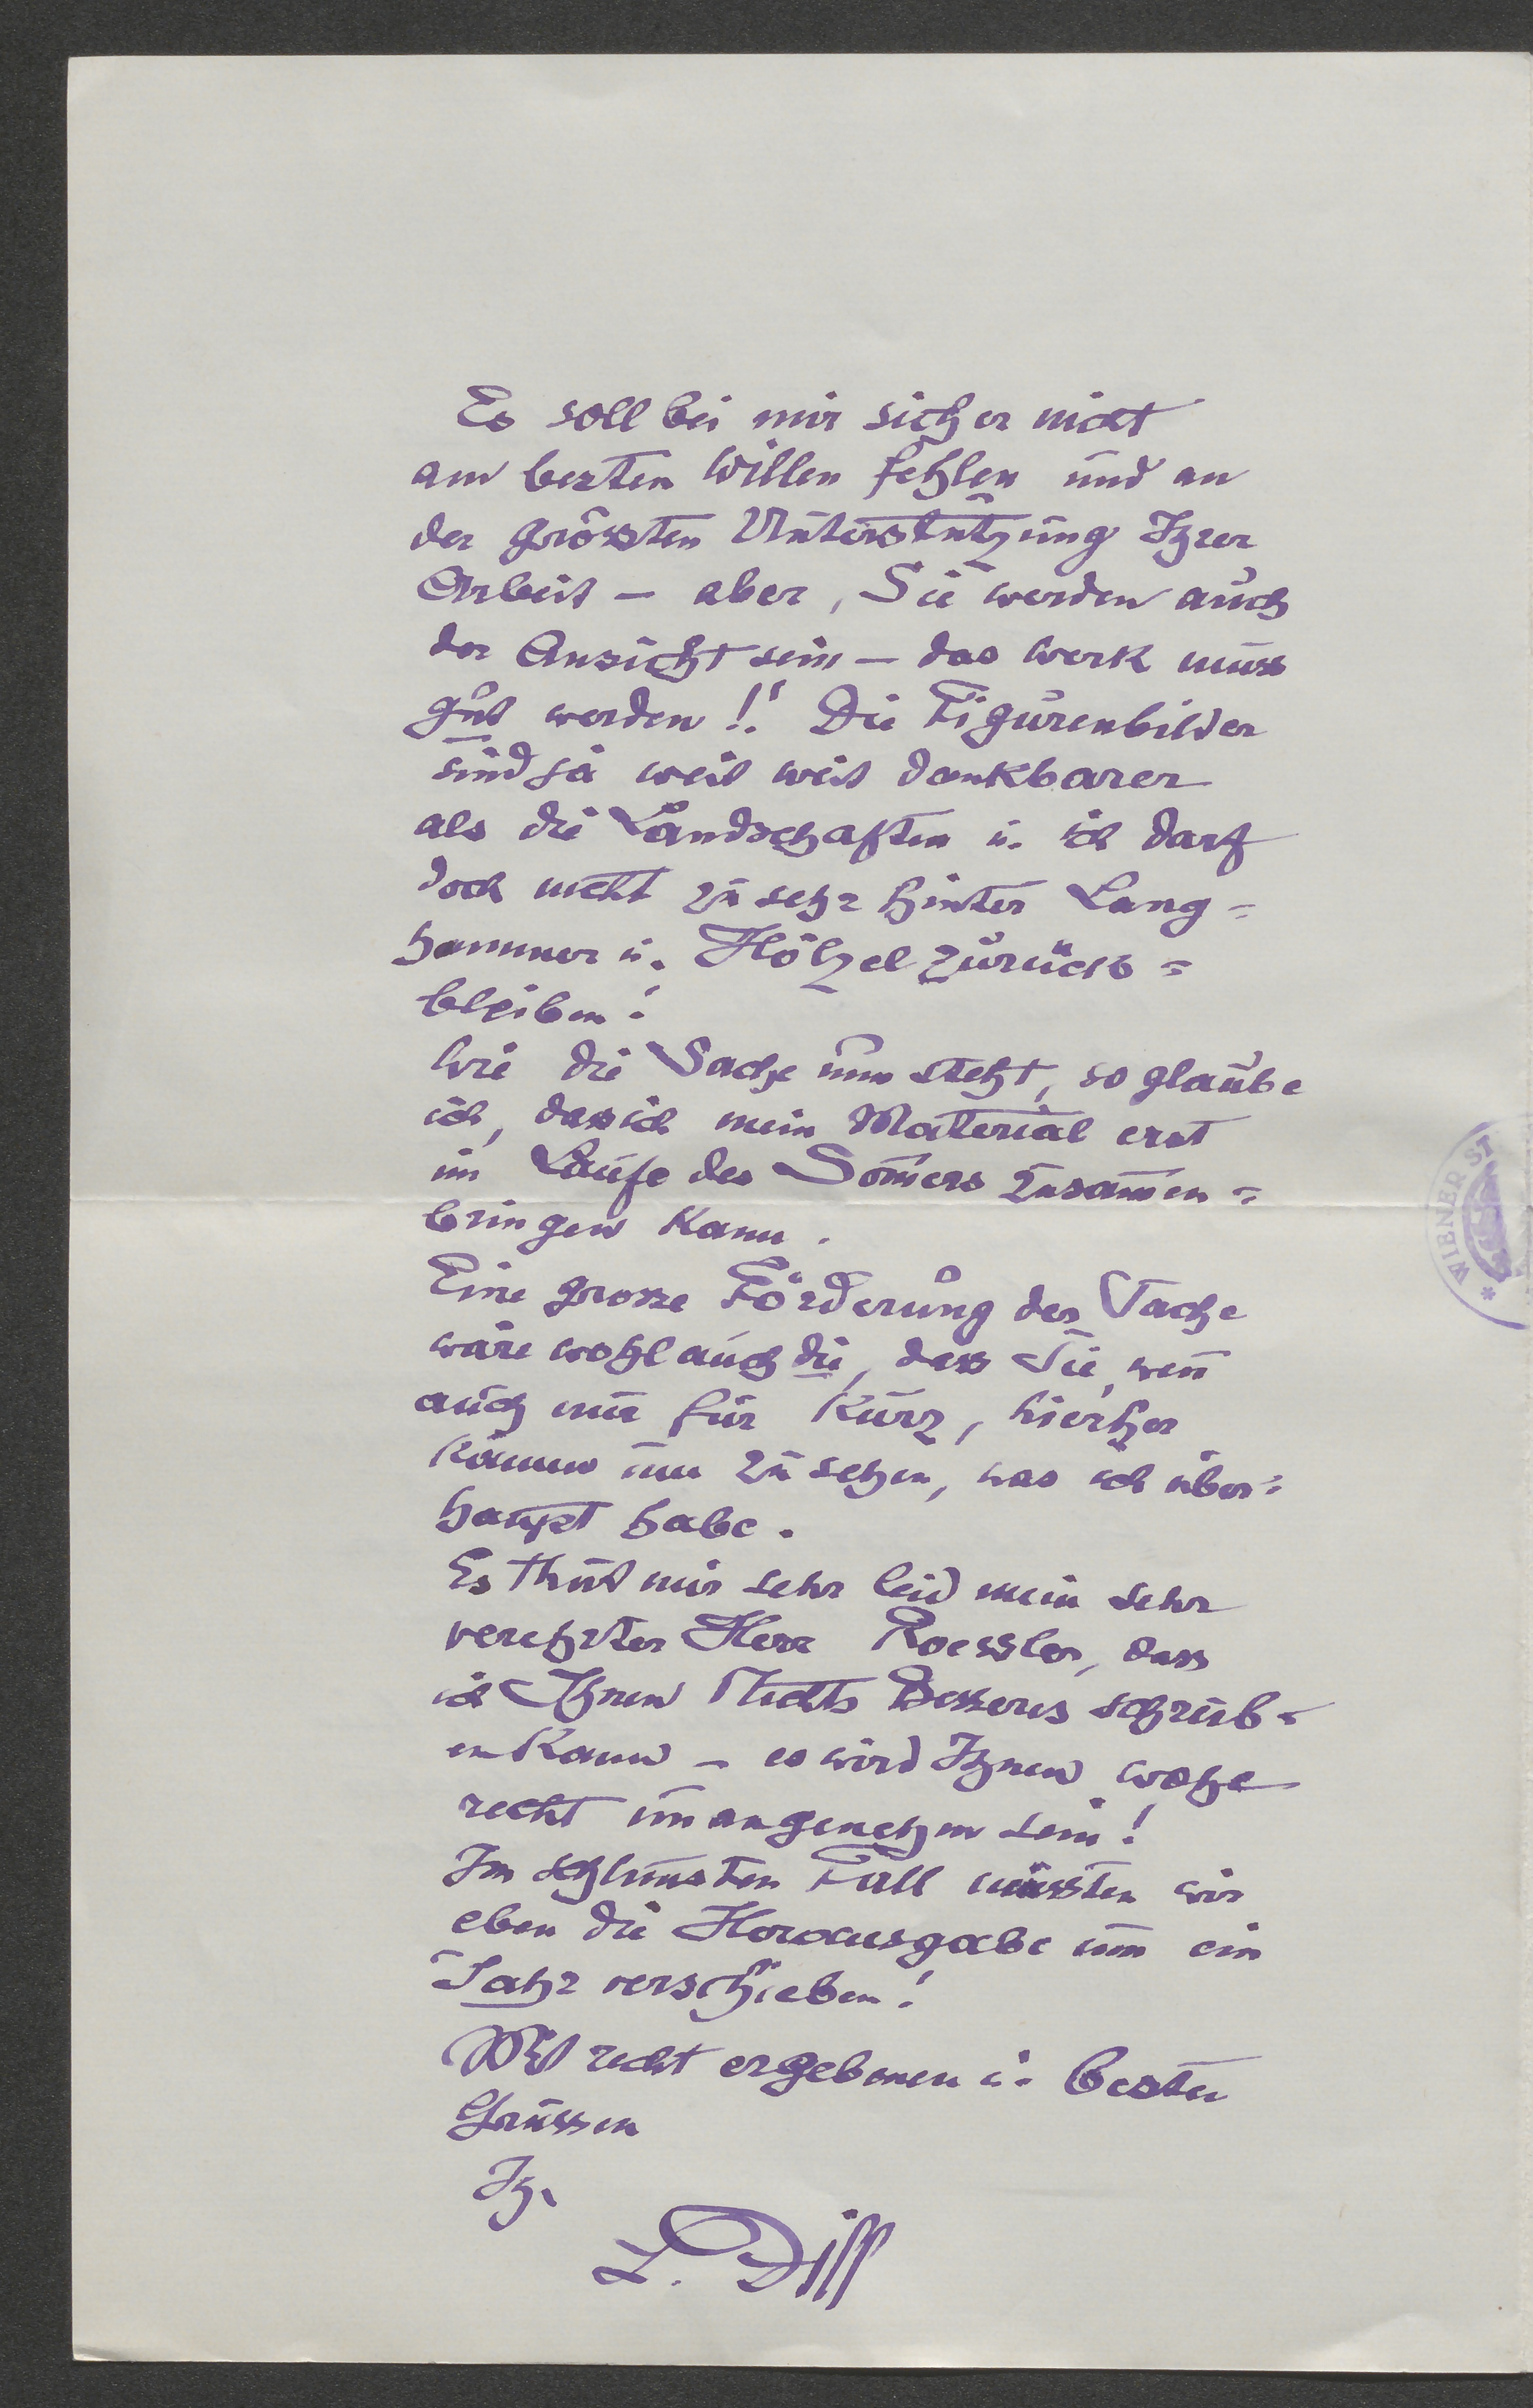 Es soll bei mir sicher nicht
am besten Willen fehlen und an
der grössten Unterstützung Ihrer
Arbeit – aber, Sie werden auch
der Ansicht sein – das Werk muss
gut werden!! Die Figurenbilder
sind ja weit weit dankbarer
als die Landschaften u. ich darf
doch nicht zu sehr hinter Lang=
hammer u. Hölzel zurück=
bleiben!
Wie die Sache nun steht, so glaube
ich, dass ich mein Material erst
im Laufe des Som̄ers zusam̄en=
bringen kann.
Eine grosse Förderung der Sache
wäre wohl auch die, dass Sie, wen̄
auch nur für Kurz, hierher
kämen um zu sehen, was ich über=
haupt habe.
Es thut mir sehr leid mein sehr
verehrter Herr Roessler, dass
ich Ihnen Nichts Besseres schreib=
en kann – es wird Ihnen wohl
recht unangenehm sein!
Im schlim̄sten Fall müssten wir
eben die Herausgabe um ein
Jahr verschieben!
Mit recht ergebenen u. besten
Grüssen
Ihr
L. Dill
WIENER ST